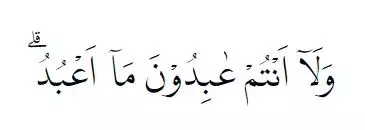 وَلَآ اَنْتُمْ عٰبِدُوْنَ مَآ اَعْبُدُۗ